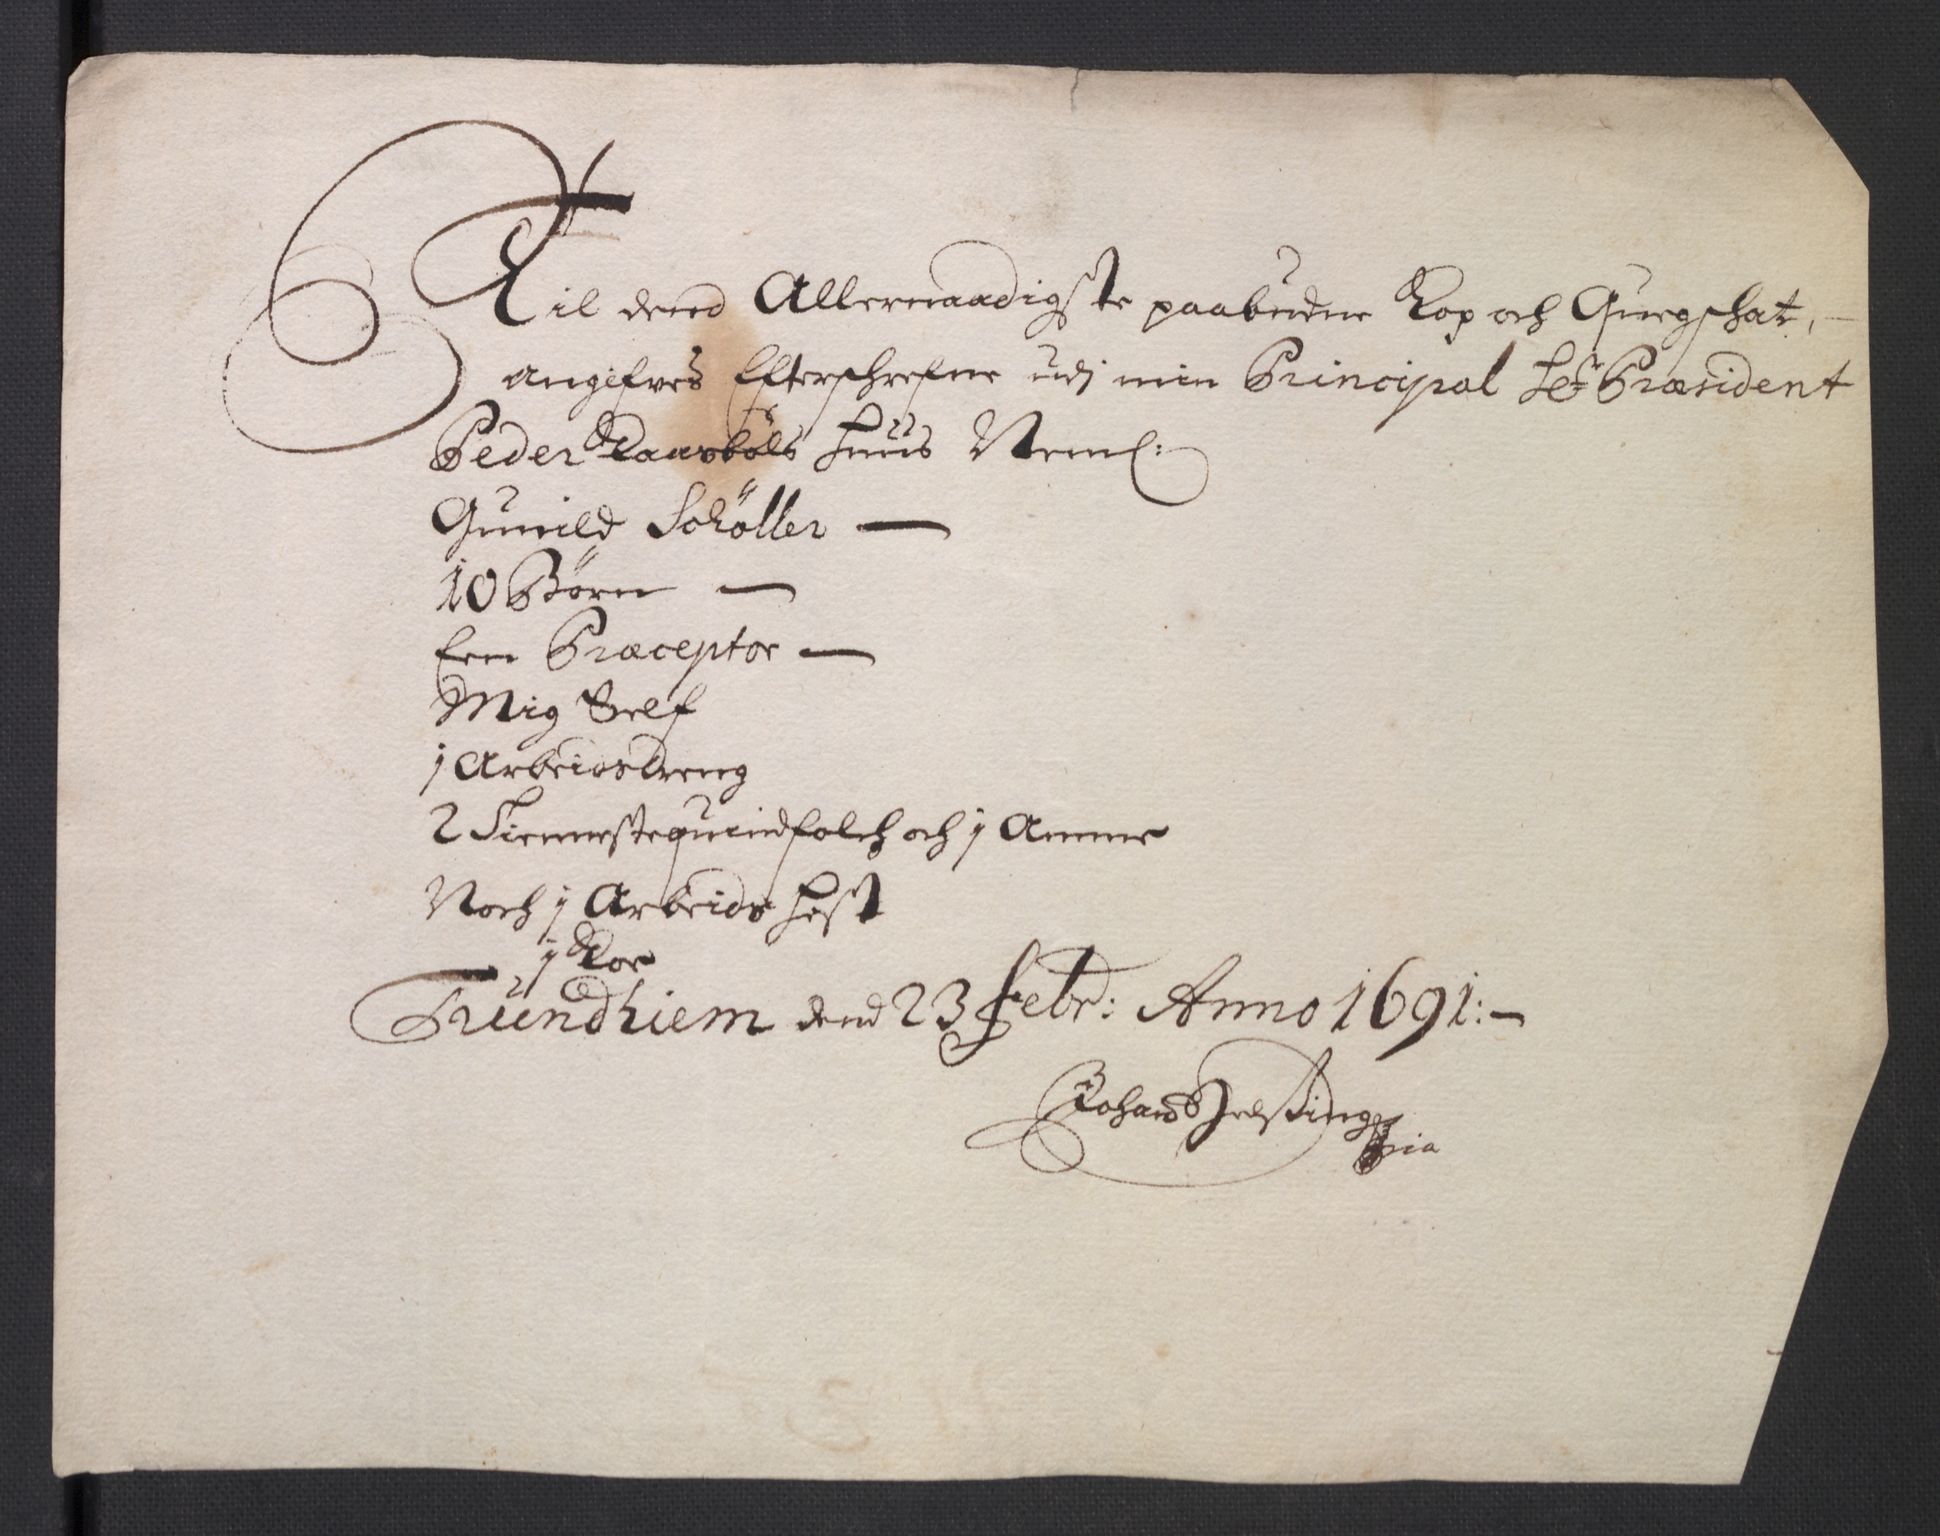 Til dend Allernaadigste paabudne Kop och Quegschat,
angifves Efterschrefne udj min Principal Hr Præsident
Peder Kaasbøls Huus Neml:
Gunild Schøller —
10 Børn —
Een Præceptor —
Mig Self
1 Arbeidsdreng
2 Tienesteqvindfolch och 1 Amme
Noch 1 Arbeids Hest
1 Koe
Trundhiem dend 23 Febr: Anno 1691:-
Johan